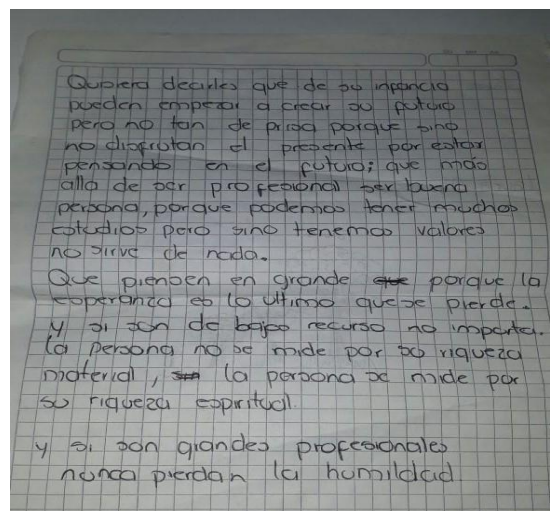 Quisiera decirles que de su infancia
pueden empezar a crear su futuro
pero no tan de prisa porque sino
no disfrutan el presente por estar
pensando en el futuro; que más
alla de ser profesional ser buena
persona, porque podemos tener muchos
estudios pero sino tenemos valores
no sirve de nada.
Que piensen en grande porque la
esperanza es lo ultimo que se pierde.
y si son de bajos recurso no importa.
la persona no se mide por su riqueza
material, la persona se mide por
su riqueza espiritual.
y si son grandes profesionales
nunca pierdan la humildad.